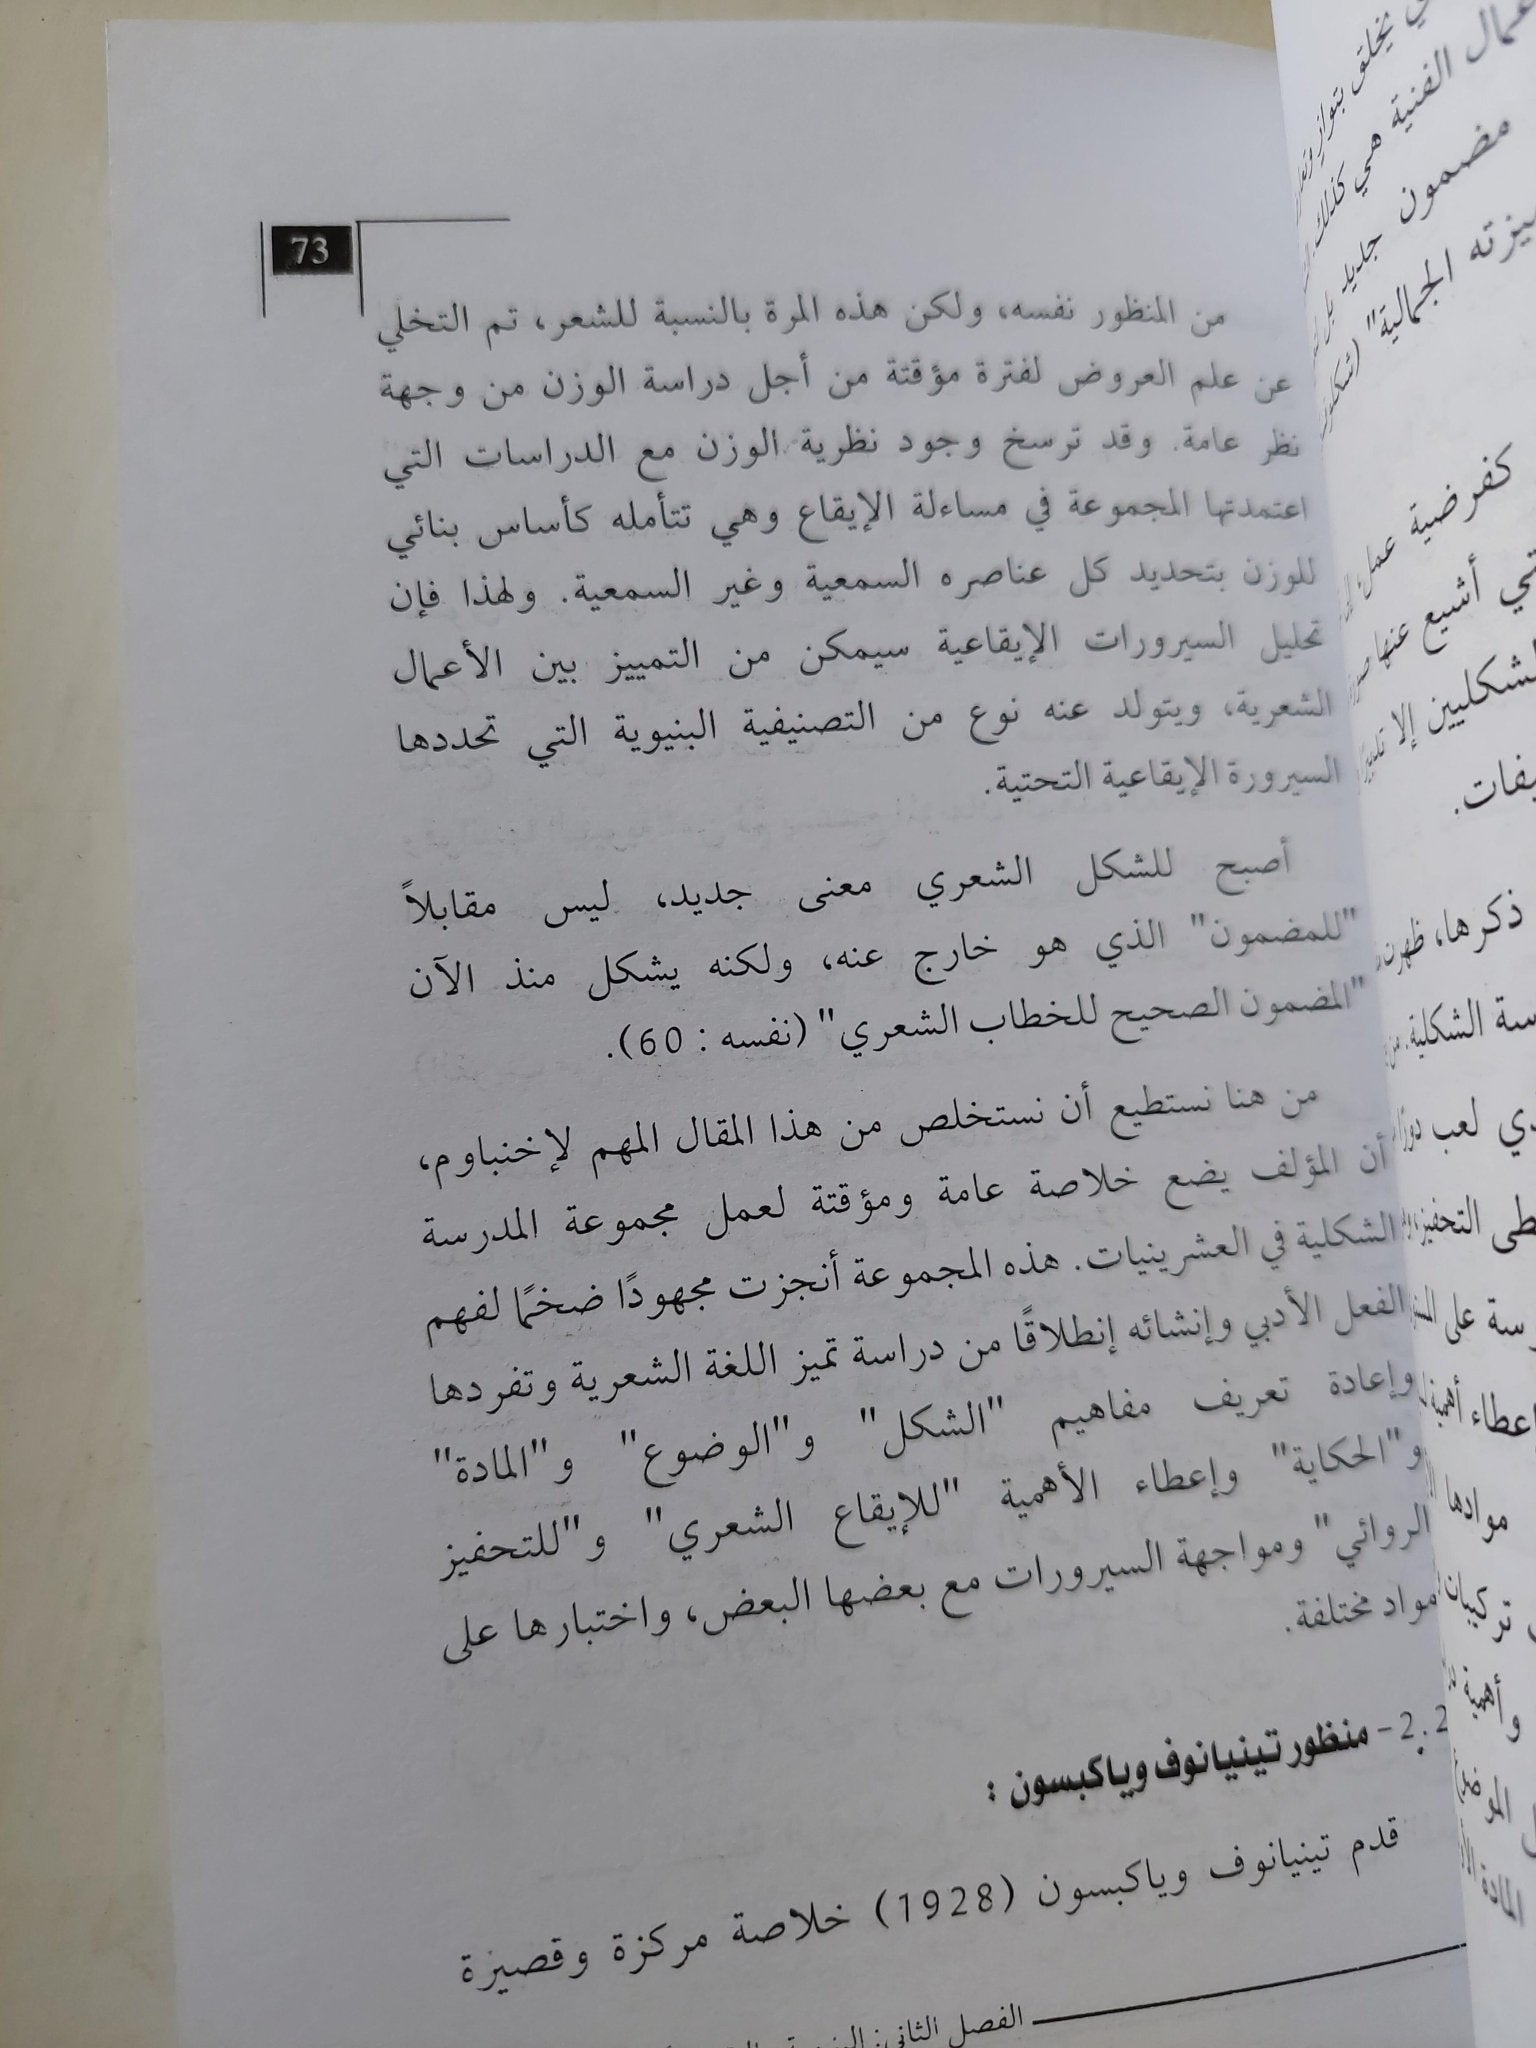 73
من المنظور نفسه، ولكن هذه المرة بالنسبة للشعر، تم التخلي
عن علم العروض لفترة مؤقتة من أجل دراسة الوزن من وجهة
نظر عامة. وقد ترسخ وجود نظرية الوزن مع الدراسات التي
اعتمدتها المجموعة في مساءلة الإيقاع وهي تتأمله كأساس بنائي
للوزن بتحديد كل عناصره السمعية وغير السمعية. ولهذا فإن
تحليل السيرورات الإيقاعية سيمكن من التمييز بين الأعمال
الشعرية، ويتولد عنه نوع من التصنيفية البنيوية التي تحددها
السيرورة الإيقاعية التحتية.
أصبح للشكل الشعري معنى جديد، ليس مقابلاً
"للمضمون" الذي هو خارج عنه، ولكنه يشكل منذ الآن
"المضمون الصحيح للخطاب الشعري" (نفسه : 60).
من هنا نستطيع أن نستخلص من هذا المقال المهم لإخنباوم،
أن المؤلف يضع خلاصة عامة ومؤقتة لعمل مجموعة المدرسة
الشكلية في العشرينيات. هذه المجموعة أنجزت مجهودًا ضخمًا لفهم
الفعل الأدبي وإنشائه إنطلاقًا من دراسة تميز اللغة الشعرية وتفردها
وإعادة تعريف مفاهيم "الشكل" و"الوضوع" و"المادة"
و"الحكاية" وإعطاء الأهمية "للإيقاع الشعري" و"للتحفيز
الروائي" ومواجهة السيرورات مع بعضها البعض، واختبارها على
مواد مختلفة.
2.2- منظور تينيانوف وياكبسون :
قدم تينيانوف وياكبسون (1928) خلاصة مركزة وقصيرة
الفصل الثاني:
عمال الفنية هي كذلك
مضمون جديد بل
الجمالية"
كفرضية عمل
أشيع عنها
الشكليين إلا
ذكرها، ظهرت
الشكلية. من
لعب دورًا
التحفيز
على
أهمية
موادها
وأهمية
المادة